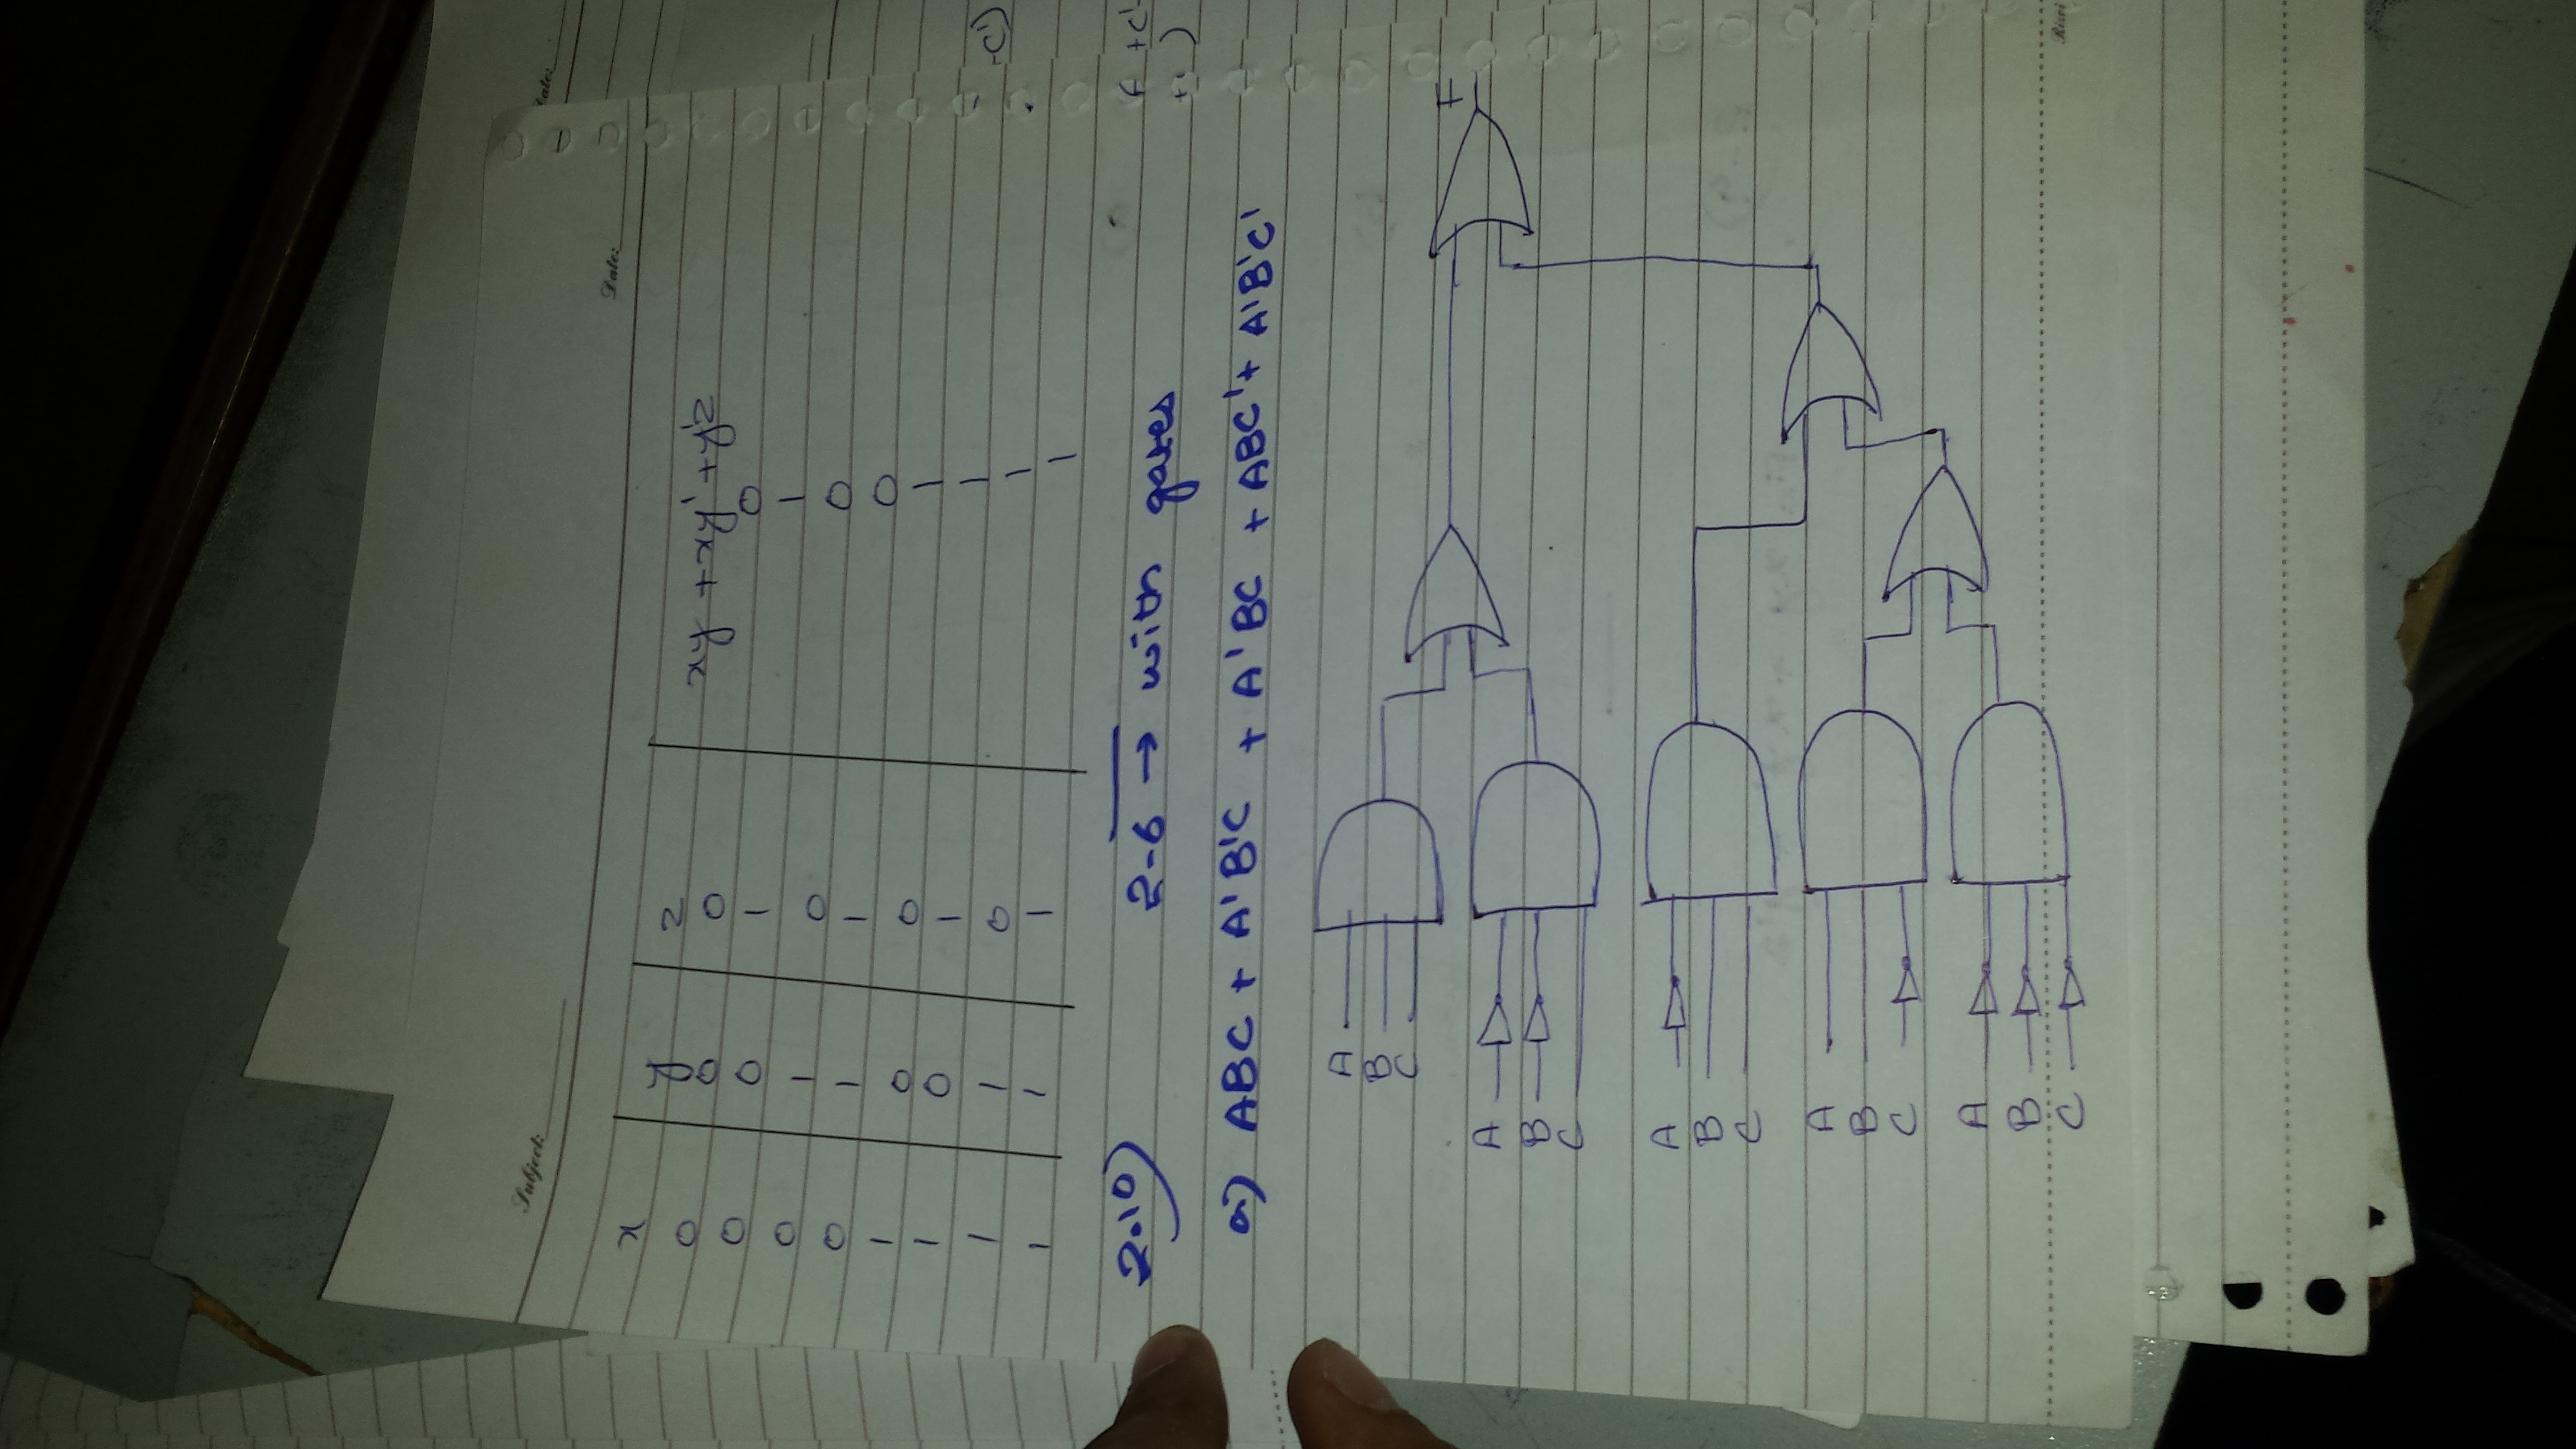 Subject: Date:
x y z xy + xy' + y'z
0 0 0 0
0 0 1 1
0 1 0 0
0 1 1 0
1 0 0 1
1 0 1 1
1 1 0 1
1 1 1 1
2.10) 2-6 → with gates
a) ABC + A'B'C + A'BC + ABC' + A'B'C'
A
B
C
A
B
C
A
B
C
A
B
C
A
B
C
F